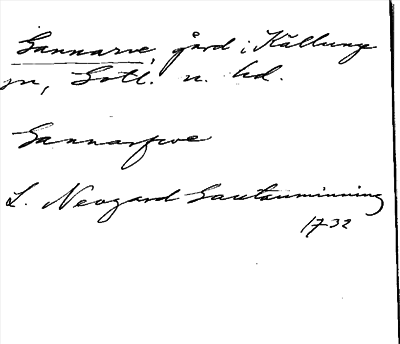 Gannarve, gård i Källunge
sn, Gotl. n. hd.
Gannarfwe
L. Neogard Gautauminning
1732